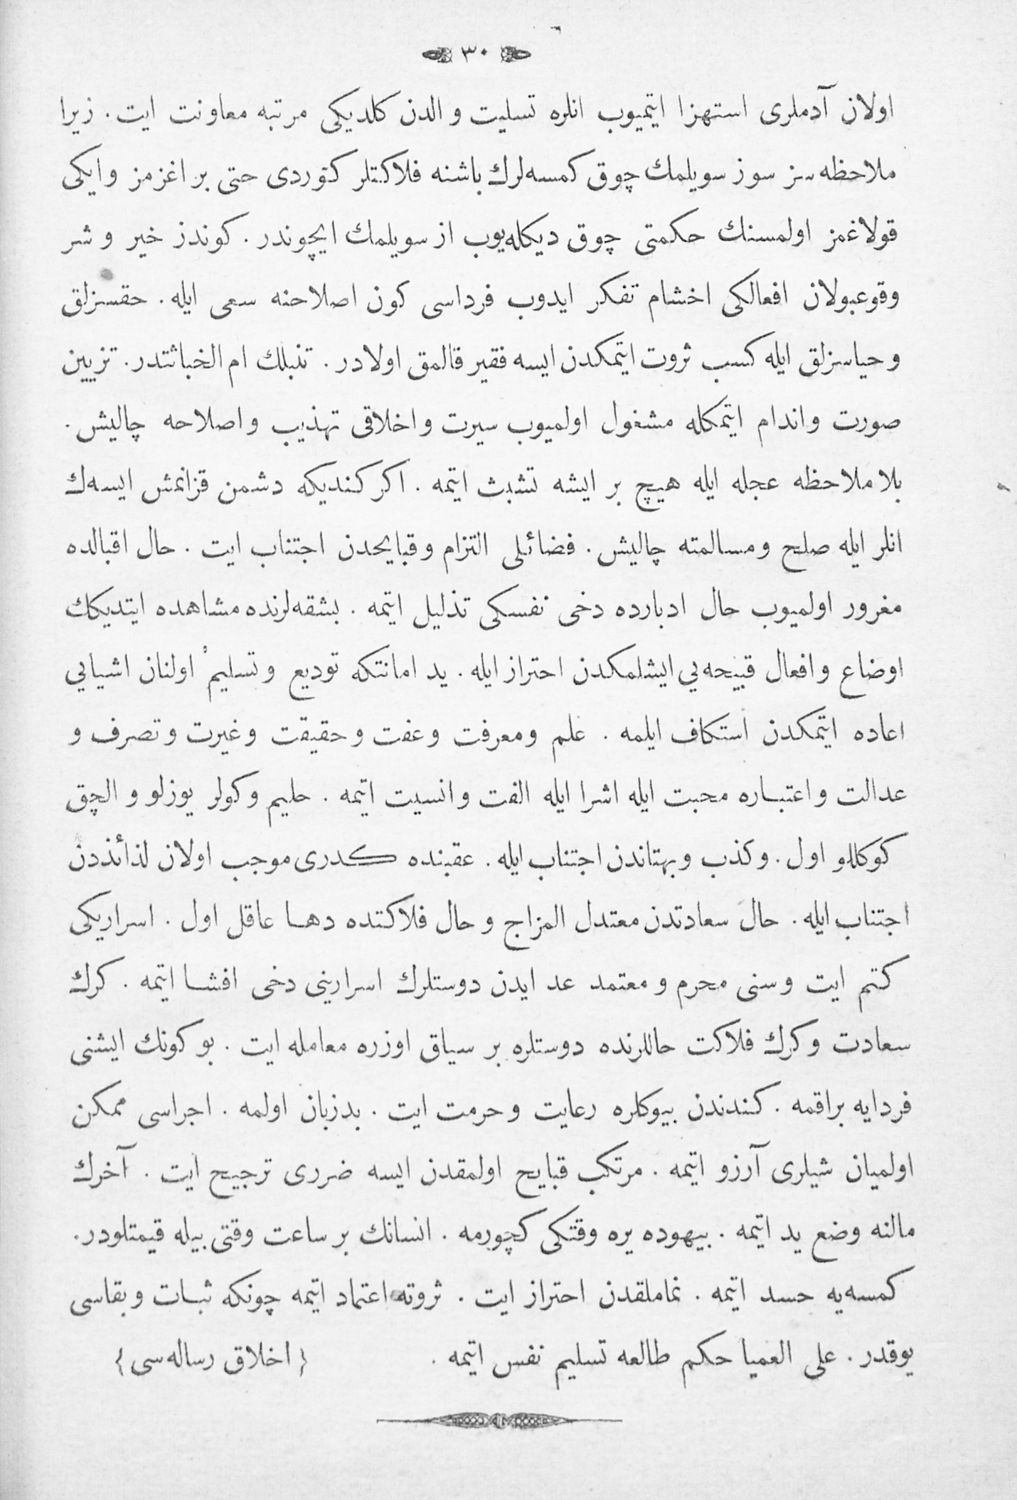 ٣٠
اولان آدملری استهزا ایتمیوب انلره تسلیت و الدن كلدیكی مرتبه معاونت ایت . زیرا
ملاحظه سز سوز سویلمك چوق كمسه‌لرك باشنه فلاكتلر كتوردی حتی بر اغزمز و ایكی
قولاغمز اولمسنك حكمتی چوق دیكله‌یوب از سویلمك ایچوندر . كوندز خیر و شر
وقوعبولان افعالكی اخشام تفكر ایدوب فرداسی كون اصلاحنه سعی ایله . حقسزلق
و حیاسزلق ایله كسب ثروت ایتمكدن ایسه فقیر قالمق اولادر . تنبلك ام الخباثتدر . تزیین
صورت و اندام ایتمكله مشغول اولمیوب سیرت و اخلاقی تهذیب و اصلاحه چالیش .
بلا ملاحظه عجله ایله هیچ بر ایشه تشبث ایتمه . اكر كندیكه دشمن قزانمش ایسه‌ك
انلر ایله صلح و مسالمته چالیش . فضائلی التزام و قبایحدن اجتناب ایت . حال اقبالده
مغرور اولمیوب حال ادبارده دخی نفسكی تذلیل ایتمه . بشقه‌لرنده مشاهده ایتدیكك
اوضاع و افعال قبیحه‌یی ایشلمكدن احتراز ایله . ید امانتكه تودیع و تسلیم اولنان اشیایی
اعاده ایتمكدن استكاف ایلمه . علم و معرفت و عفت و حقیقت و غیرت و تصرف و
عدالت و اعتباره محبت ایله اشرا ایله الفت و انسیت ایتمه . حلیم و كولر یوزلو و الچق
كوكللو اول . و كذب و بهتاندن اجتناب ایله . عقبنده كدری موجب اولان لذائذدن
اجتناب ایله . حال سعادتدن معتدل المزاج و حال فلاكتده دها عاقل اول . اسراریكی
كتم ایت و سنی محرم و معتمد عد ایدن دوستلرك اسرارینی دخی افشا ایتمه . كرك
سعادت و كرك فلاكت حاللرنده دوستلره بر سیاق اوزره معامله ایت . بو كونك ایشنی
فردایه براقمه . كندندن بیوكلره رعایت و حرمت ایت . بدزبان اولمه . اجراسی ممكن
اولمیان شیلری آرزو ایتمه . مرتكب قبایح اولمقدن ایسه ضرری ترجیح ایت . آخرك
مالنه وضع ید ایتمه . بیهوده یره وقتكی كچورمه . انسانك بر ساعت وقتی بیله قیمتلودر .
كمسه‌یه حسد ایتمه . نماملقدن احتراز ایت . ثروته اعتماد ایتمه چونكه ثبات و بقاسی
یوقدر . علی العمیا حكم طالعه تسلیم نفس ایتمه . { اخلاق رساله‌سی }